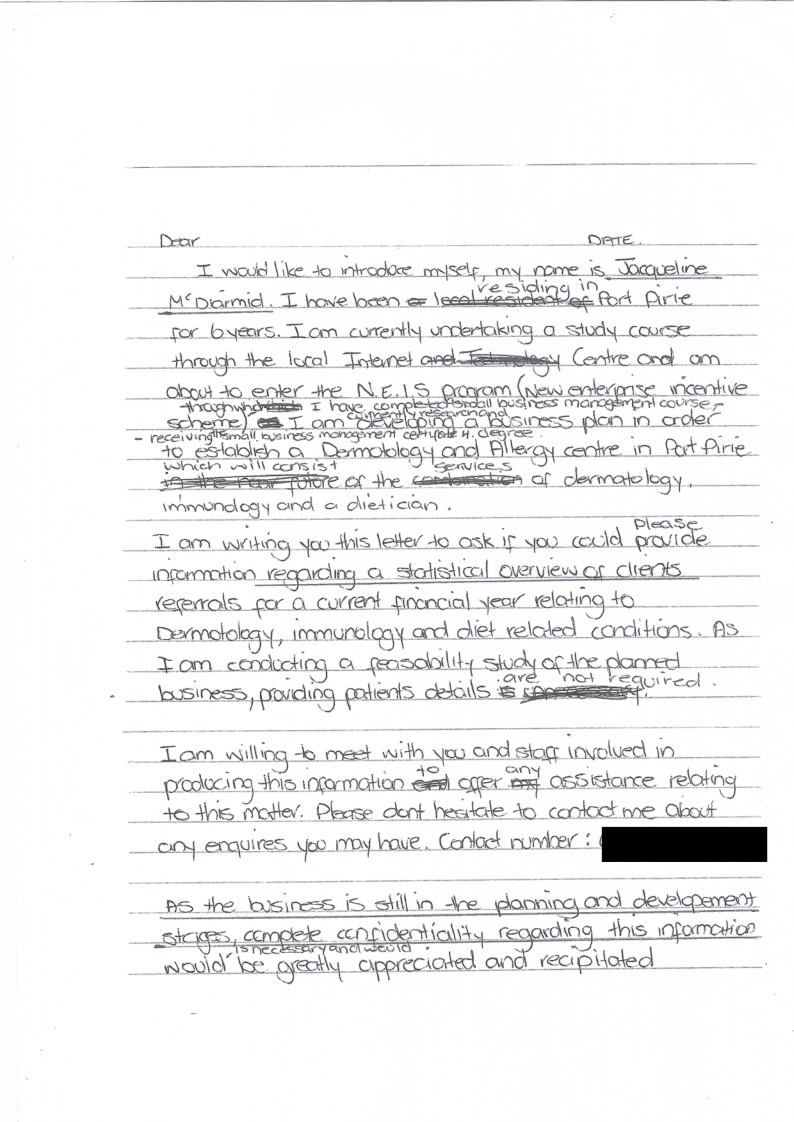 Dear DATE.
I would like to introduce myself, my name is Jacqueline
residing in
McDiarmid. I have been a local resident of Port Pirie
for 6 years. I am currently undertaking a study course
through the local Internet and Technology Centre and am
about to enter the N.E.I.S program (New enterprise incentive
through which I have completed small business management course,-
currently research and
scheme) I am developing a business plan in order
- receiving small business management certificate 4. degree.
to establish a Dermatology and Allergy centre in Port Pirie
which will consist services
in the near future of the combination of dermatology,
immunology and a dietician.
please
I am writing you this letter to ask if you could provide
information regarding a statistical overview of clients
referrals for a current financial year relating to
Dermotology, immunology and diet related conditions. As
I am conducting a feasability study of the planned
are not required.
business, providing patients details is unnecessary.
I am willing to meet with you and staff involved in
to any
producing this information and offer my assistance relating
to this matter. Please dont hesitate to contact me about
any enquires you may have. Contact number :
As the business is still in the planning and developement
stages, complete confidentiality regarding this information
is necessary and would
would be greatly appreciated and recipitated